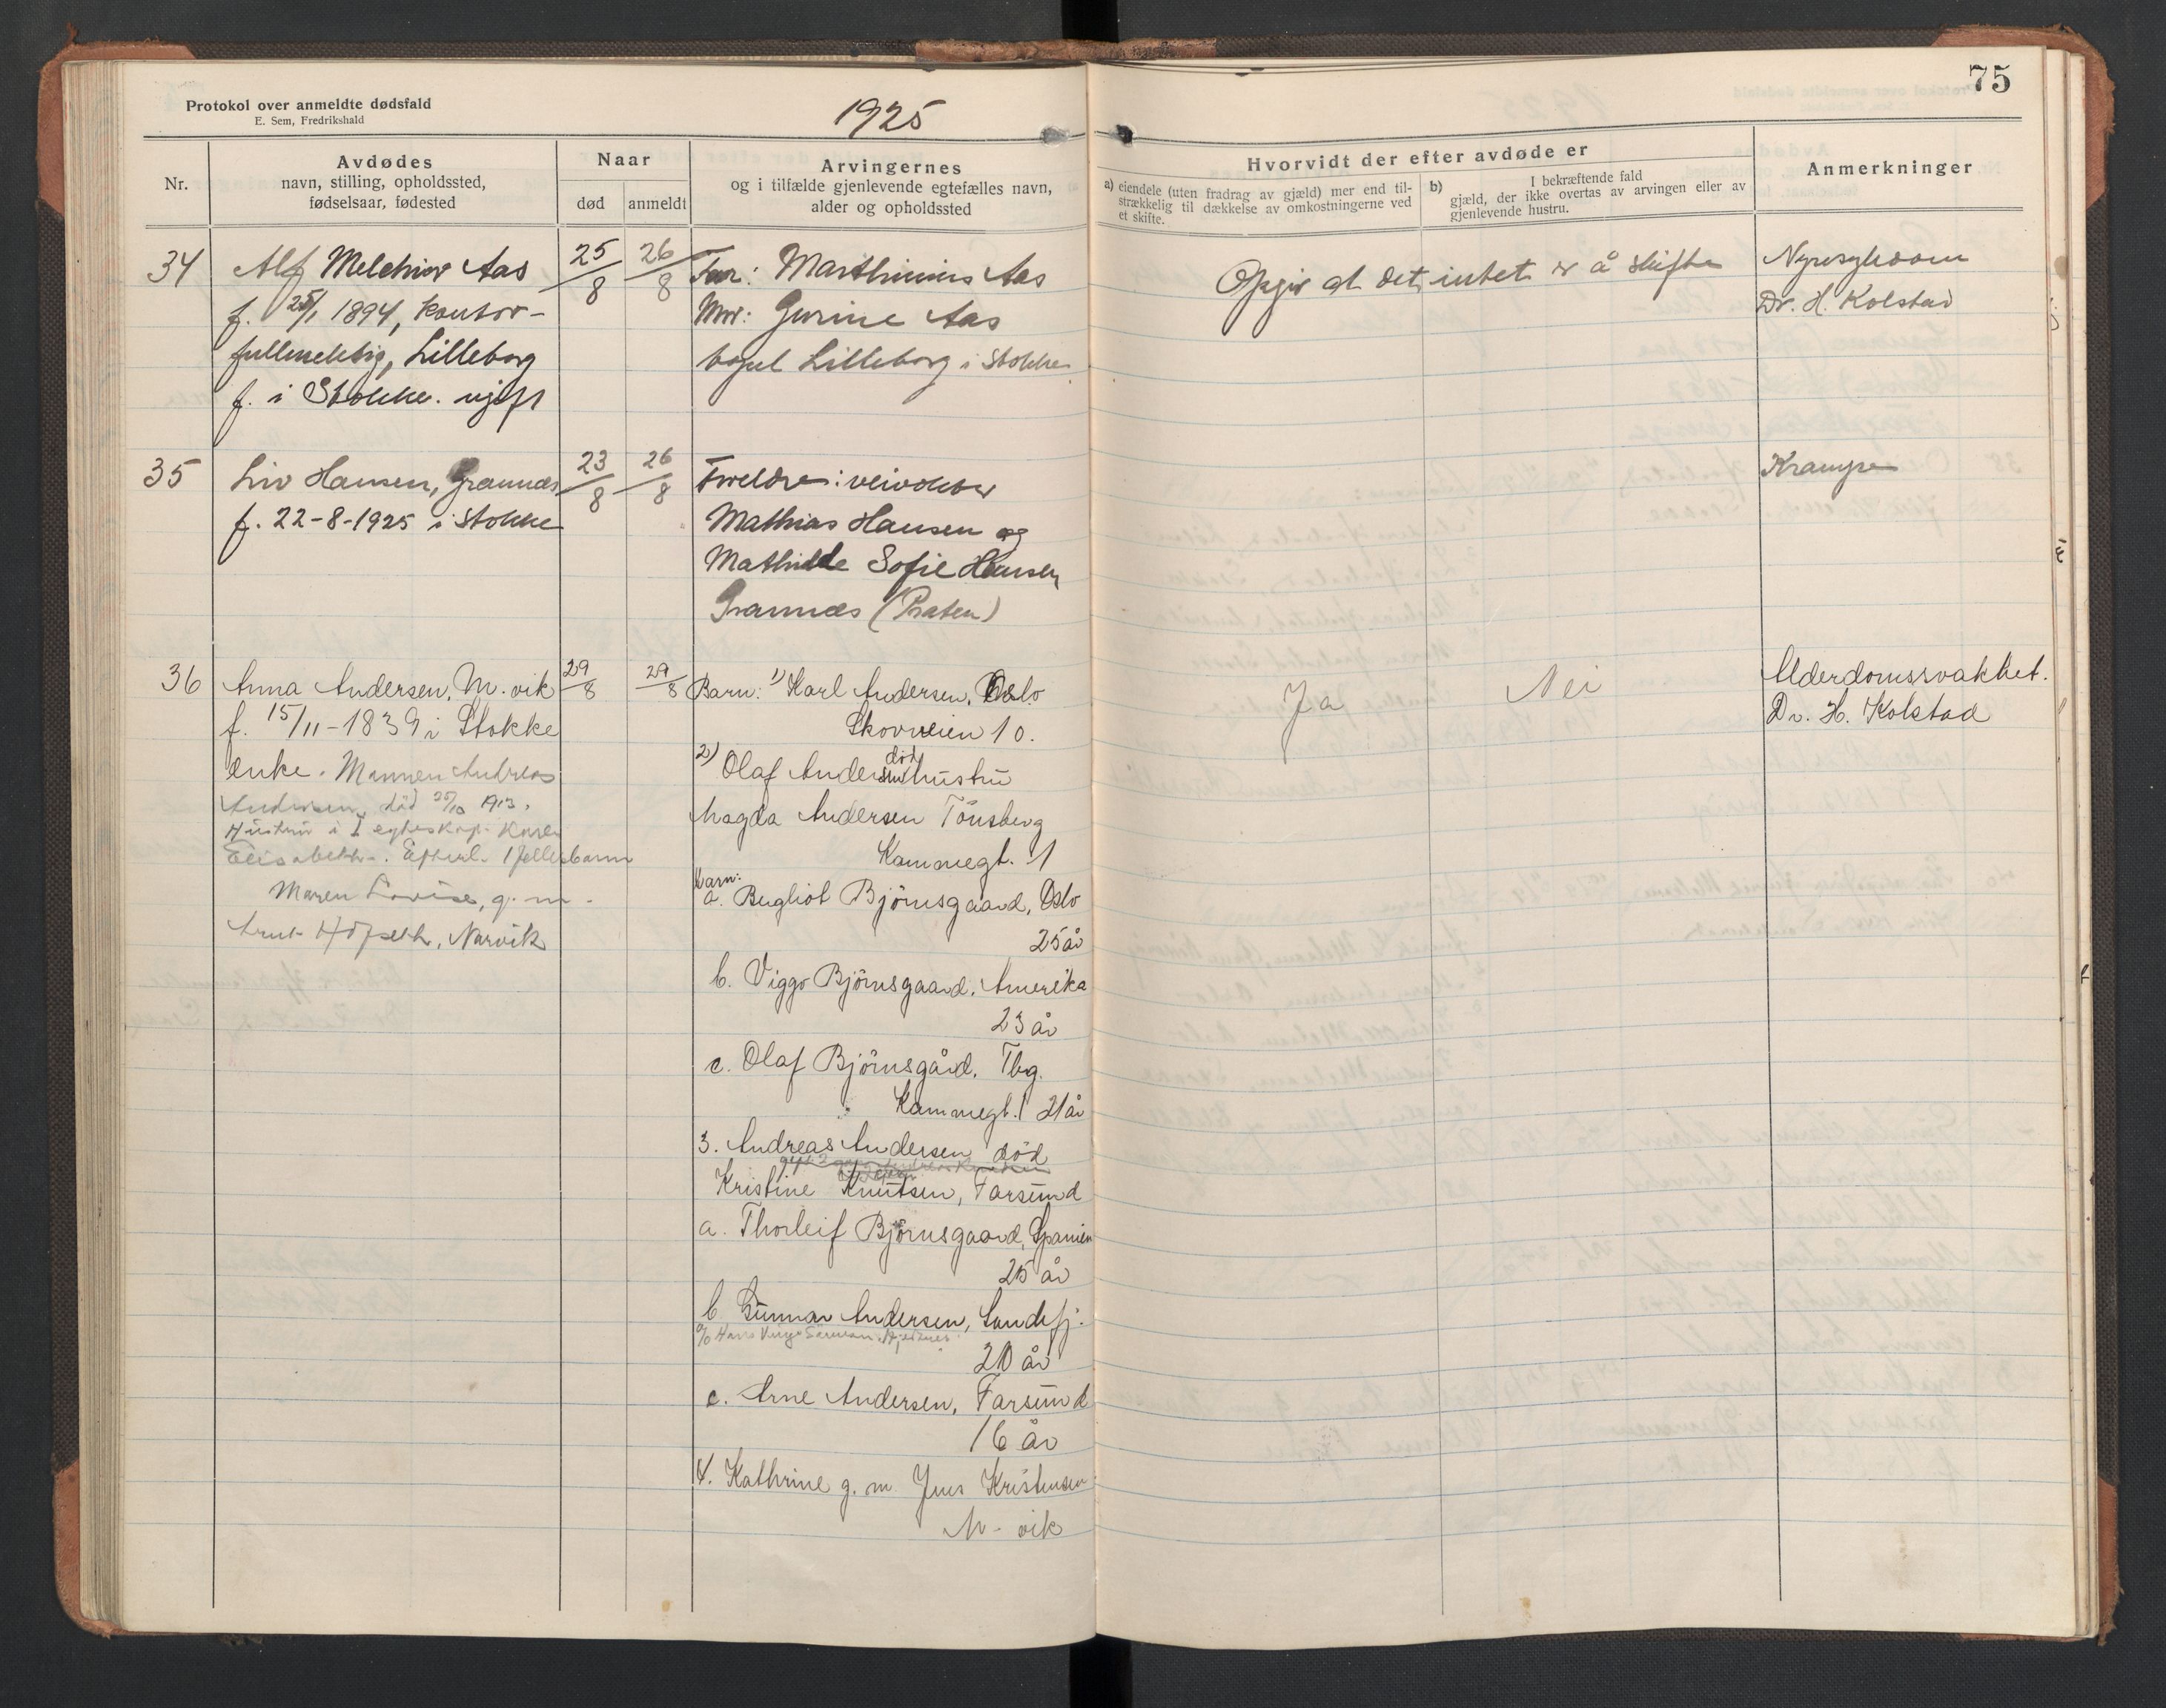 75
Protokol over anmeldte dødsfald
E. Sem, Fredrikshald
1925
Nr.
Avdødes
navn, stilling, opholdssted,
fødselsaar, fødested
Naar
død
anmeldt
Arvingernes
og i tilfælde gjenlevende egtefælles navn,
alder og opholdssted
Hvorvidt der efter avdøde er
a) eiendele (uten fradrag av gjæld) mer end til-
strækkelig til dækkelse av omkostningerne ved
et skifte.
b) I bekræftende fald
gjæld, der ikke overtas av arvingen eller av
gjenlevende hustru.
Anmerkninger
34
Alf Melchior Aas
f. 25/1 1894, kontor-
fullmektig, Lilleborg
f. i Stokke. ugift
25/8
26/8
Far: Marthinius Aas
Mor: Gurine Aas
bopel Lilleborg i Stokke
Opgir at det intet er å skifte
Nyresykdom
Dr. H. Kolstad
35
Liv Hansen, Grannes
f. 22-8-1925 i Stokke
23/8
26/8
Foreldre: veivokter
Mathias Hansen og
Mathilde Sofie Hansen
Grannæs (Praten)
Krampe
36
Anna Andersen, M. vik
f. 15/11-1839 i Stokke
enke. Mannen Andreas
Andersen, död 25/10 1913.
Hustru i I egteskap. Karen
Elisabeth. Efterl. 1 fellesbarn
Maren Lovise, g. m.
Arnt, Narvik
29/8
29/8
Barn: 1) Karl Andersen, Oslo
Skovveien 10.
2) Olaf Andersen död hustru
Magda Andersen Tönsberg
Kammegt. 1
barn:
a. Bergliot Björnsgaard, Oslo
25 år
b. Viggo Björnsgaard, Amerika
23 år
c. Olaf Björnsgård, Tbg.
Kammegt. 1 21 år
3. Andreas Andersen död
Kristine Knutsen, Farsund
a. Thorleif Björnsgaard, Spanien
25 år
b Gunnar Andersen, Sandefj.
20 år
c. Arne Andersen, Farsund
16 år
4. Kathrine g. m. Jens Kristensen
M- vik
Ja
Nei
Alderdomssvakhet.
Dr. H. Kolstad